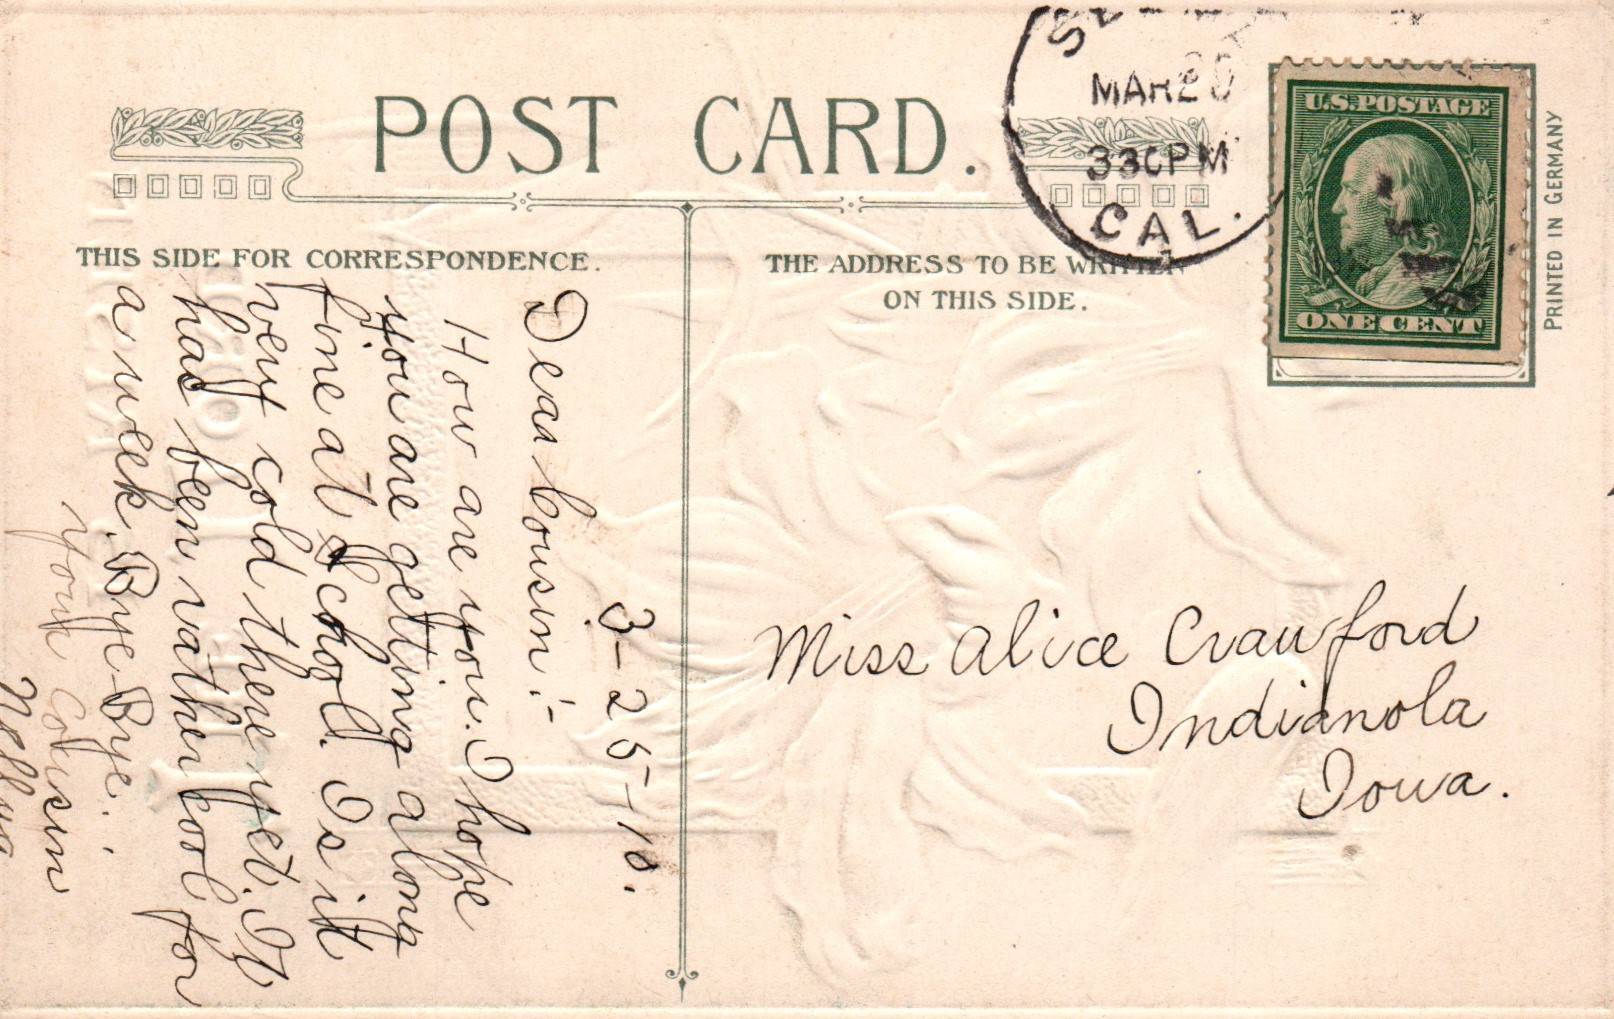 POST CARD.
THIS SIDE FOR CORRESPONDENCE.
THE ADDRESS TO BE WRITTEN
ON THIS SIDE.
MAR
330PM
CAL.
U.S.POSTAGE
ONE CENT
PRINTED IN GERMANY
3-25-10.
Dear Cousin:-
How are you. I hope
you are getting along
fine at School. Is it
very cold there yet. It
has been rather cool for
a week. Bye-Bye.
your Cousin
Miss Alice Crawford
Indianola
Iowa.